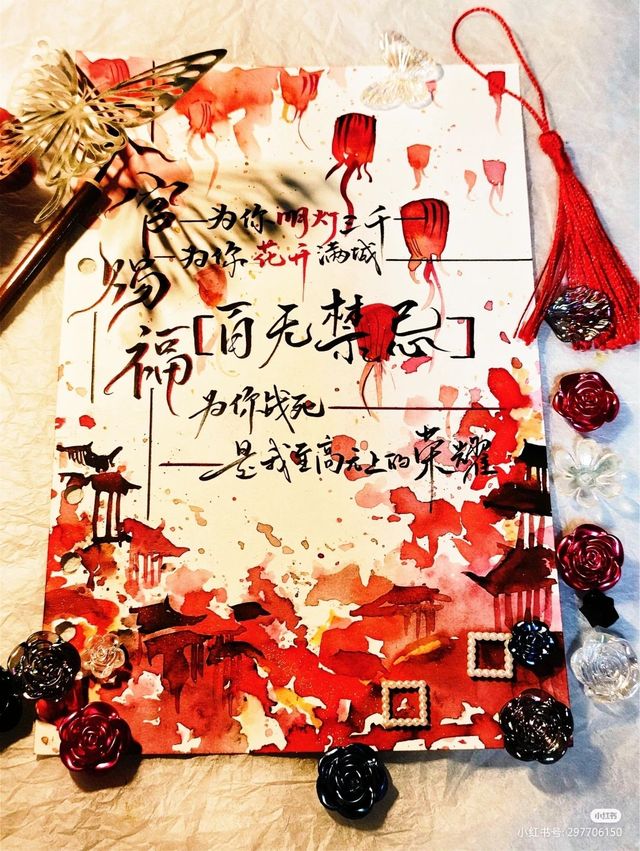 官赐福
—为你明灯三千—
—为你花开满城—
[百无禁忌]
为你战死——
—是我至高无上的荣耀
小红书
小红书号: 297706150